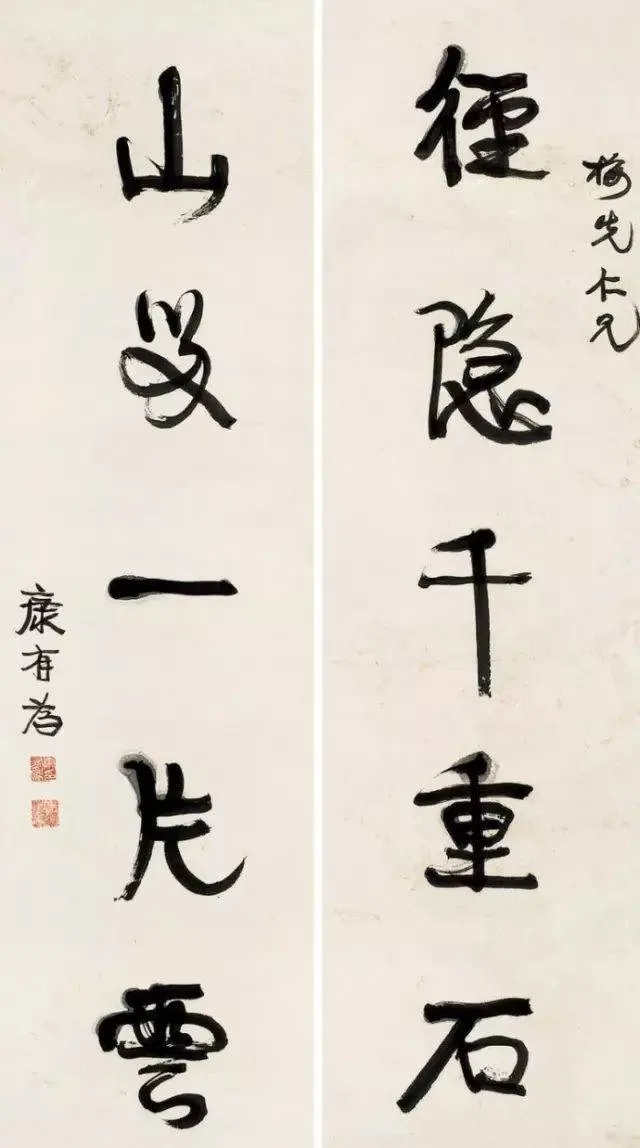 梅先仁兄
徑隐千重石
山 一片雲
康有為